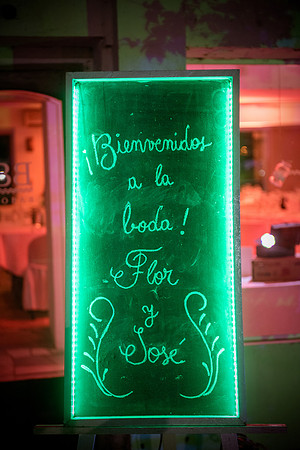 ¡Bienvenidos
a la
boda!
Flor
y
José